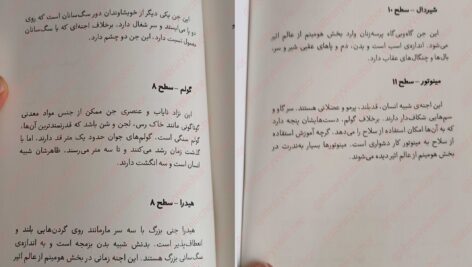 شیردال – سطح ۱۰
این جن گاه‌وبی‌گاه پرسه‌زنان وارد بخش هومینم از عالم اثیر
می‌شود. اندازه‌ی اسب است و بدن، دم و پاهای عقبی شیر و سر،
بال‌ها و چنگال‌های عقاب دارد.
مینوتور – سطح ۱۱
این اجنه‌ی شبیه انسان، قدبلند، پرمو و عضلانی هستند. سر گاو و
سم‌هایی شکاف‌دار دارند. برخلاف گولم، دست‌هایشان پنجه دارد
که به آن‌ها امکان استفاده از سلاح را می‌دهد، گرچه آموزش استفاده
از سلاح به مینوتور کار دشواری است. مینوتورها بسیار به‌ندرت در
بخش هومینم از عالم اثیر دیده می‌شوند.
این جن یکی دیگر از خویشاوندان دور سگ‌سانان است که روی
دو پا می‌ایستد و سر شغال دارد. برخلاف اجنه‌ای که با سگ‌سانان
معمول نسبت دارد، این جن دو چشم دارد.
گولم – سطح ۸
این نژاد نایاب و عنصری جن ممکن از جنس مواد معدنی
گوناگونی مانند خاک رس، لجن و شن باشد که قدرتمندترین آن‌ها،
گولم سنگی است. گولم‌های جوان حدود یک متر قد دارند، اما با
گذشت زمان رشد می‌کنند و تا سه متر می‌رسند. ظاهرشان شبیه
انسان است و سه انگشت دارند.
هیدرا – سطح ۸
هیدرا جنی بزرگ با سه سر مارمانند روی گردن‌هایی بلند و
انعطاف‌پذیر است. بدنش شبیه بدن بزمجه است و به اندازه‌ی
سگ‌سانی بزرگ هستند. این اجنه زمانی در بخش هومینم از عالم اثیر